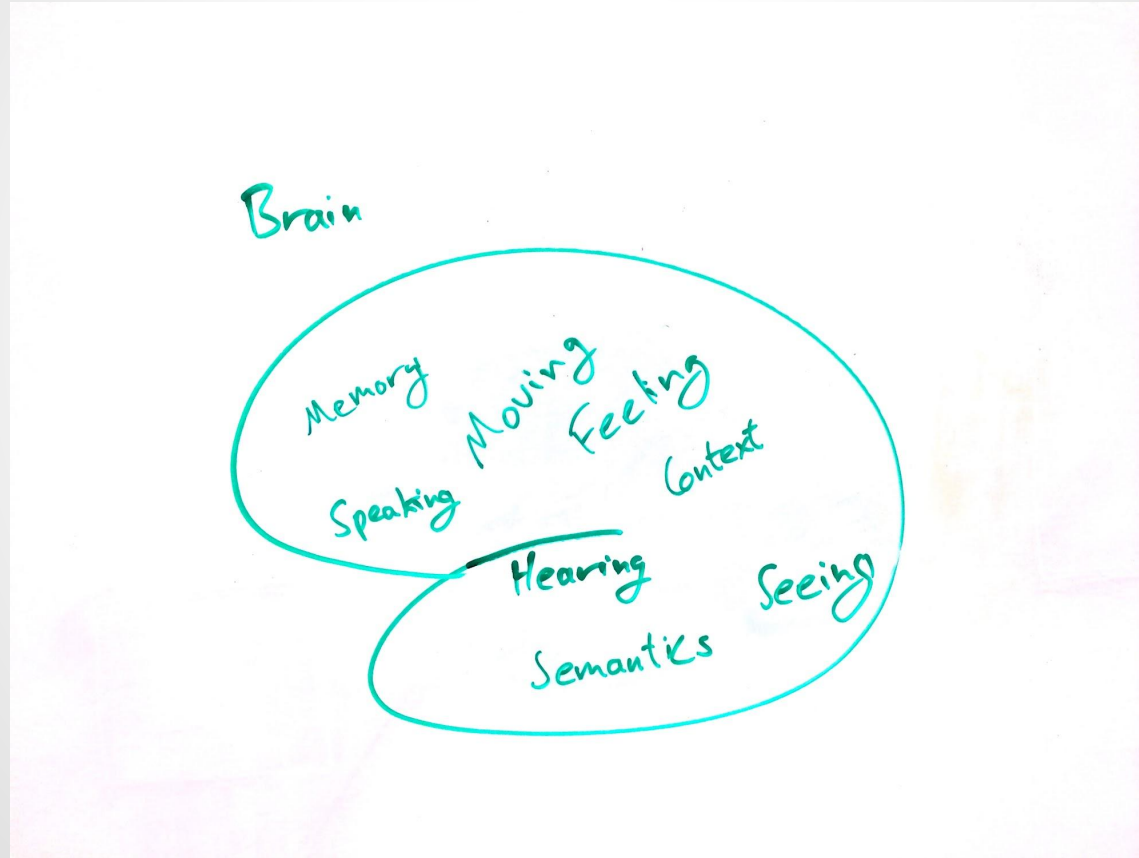 Brain
Memory
Moving
Feeling
Context
Speaking
Hearing
Seeing
Semantics